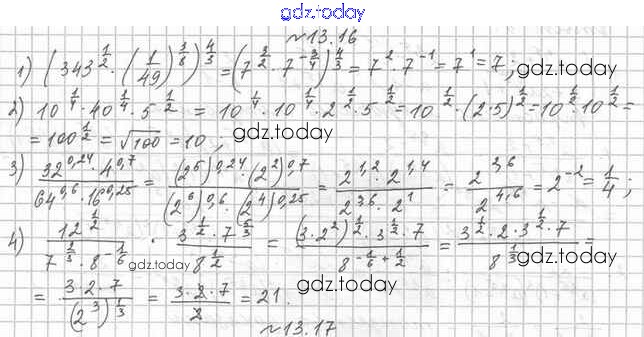 gdz.today
№13.16
1) (343^(1/2) · (1/49)^(3/8))^(4/3) = (7^(3/2) · 7^(-3/4))^(4/3) = 7^2 · 7^(-1) = 7^1 = 7; gdz.today
2) 10^(1/4) · 40^(1/4) · 5^(1/2) = 10^(1/4) · 10^(1/4) · 2^(1/2) · 5^(1/2) = 10^(1/2) · (2·5)^(1/2) = 10^(1/2) · 10^(1/2) =
= 100^(1/2) = √100 = 10; gdz.today gdz.today
3) (32^(0,24) · 4^(0,7))/(64^(0,6) · 16^(0,25)) = ((2^5)^(0,24) · (2^2)^(0,7))/((2^6)^(0,6) · (2^4)^(0,25)) = (2^(1,2) · 2^(1,4))/(2^(3,6) · 2^1) = 2^(2,6)/2^(4,6) = 2^(-2) = 1/4;
4) 12^(1/2)/(7^(2/3) · 8^(-1/6)) · (3^(1/2) · 7^(5/3))/8^(1/2) = ((3·2^2)^(1/2) · 3^(1/2) · 7)/8^(-1/6+1/2) = (3^(1/2) · 2 · 3^(1/2) · 7)/8^(1/3) =
gdz.today gdz.today gdz.today
= (3·2·7)/(2^3)^(1/3) = (3·2·7)/2 = 21. gdz.today
№13.17